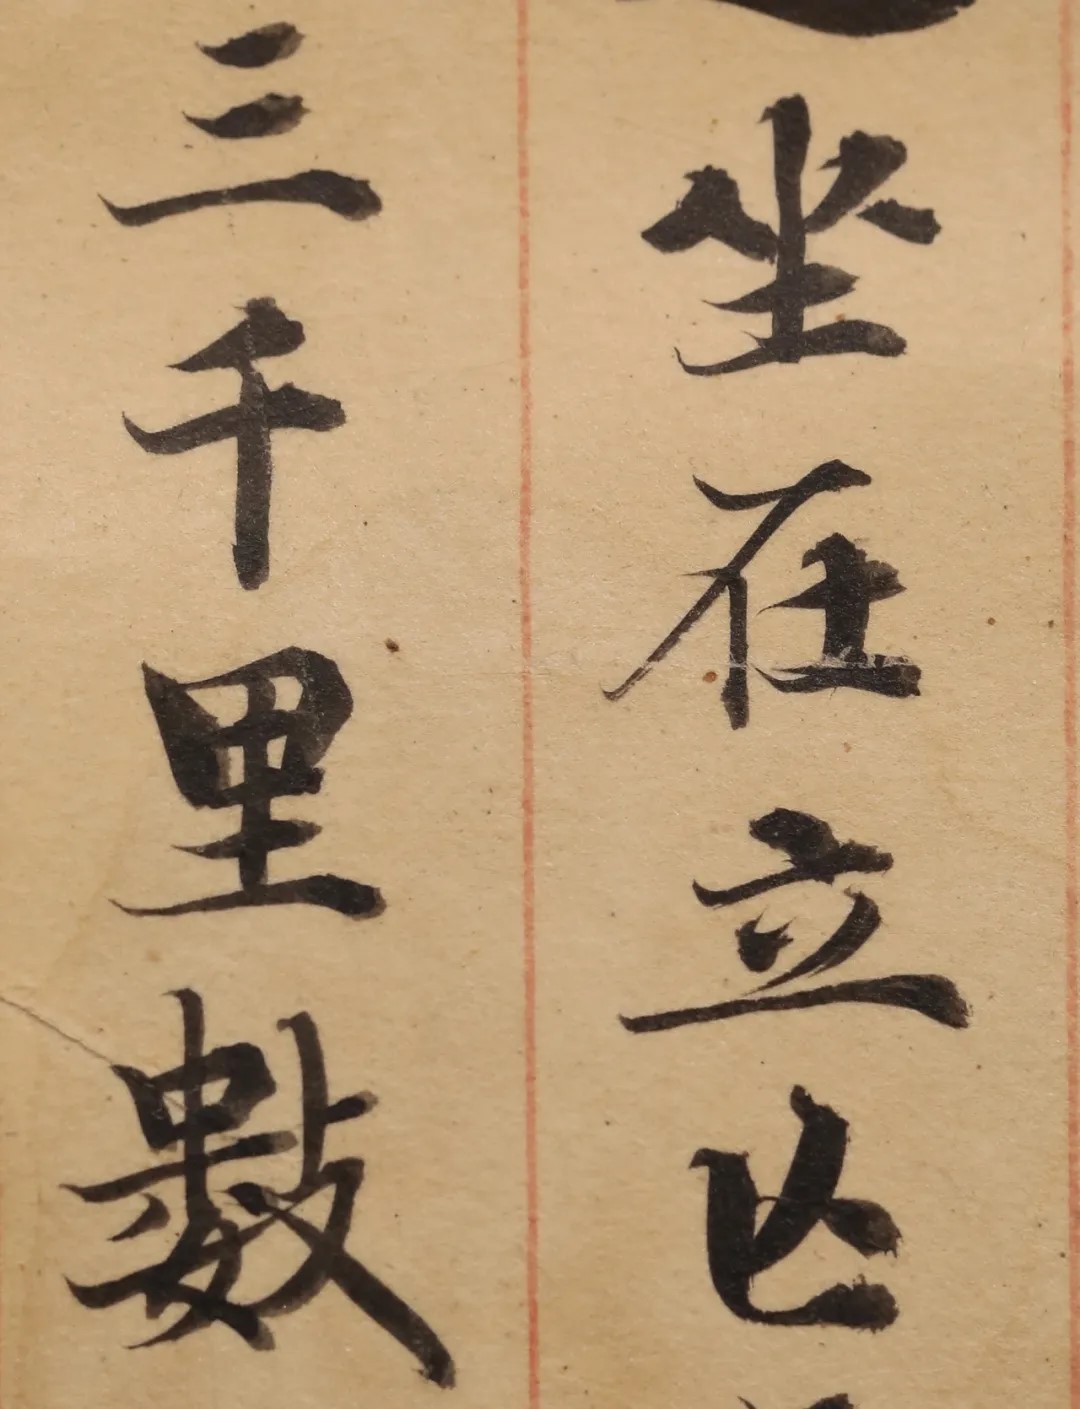 坐在立亾
三千里數